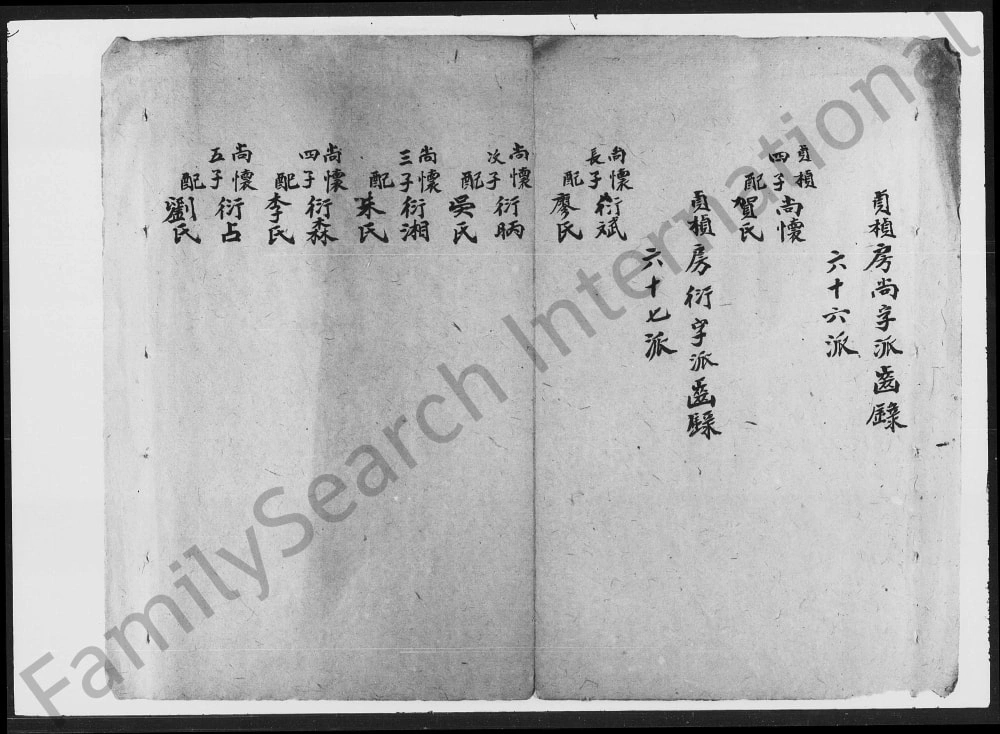 貞楨房尚字派齒錄
六十六派
貞楨
四子尚懷
配賀氏
貞楨房衍字派齒錄
六十七派
尚懷
長子衍斌
配廖氏
尚懷
次子衍昞
配吳氏
尚懷
三子衍湘
配朱氏
尚懷
四子衍森
配李氏
尚懷
五子衍占
配劉氏
FamilySearch International